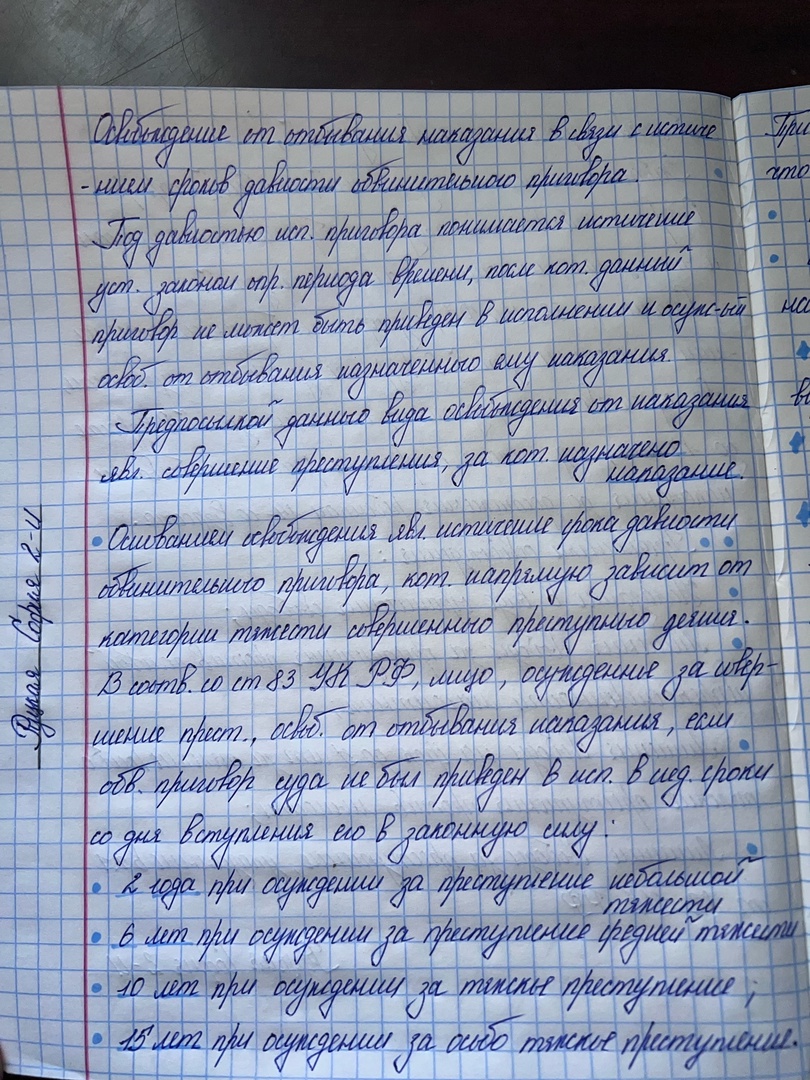 Освобождение от отбывания наказания в связи с истиче
-нием сроков давности обвинительного приговора.
Под давностью исп. приговора понимается истичение
уст. законом опр. периода времени, после кот. данный
приговор не может быть приведен в исполнении и осужд-ый
освоб. от отбывания назначенного ему наказания.
Предпосылкой данного вида освобождения от наказания
явл. совершение преступления, за кот. назначено
наказание.
• Основанием освобождения явл. истичение срока давности
обвинительного приговора, кот. напрямую зависит от
категории тяжести совершенного преступного деяния.
В соотв. со ст 83 УК РФ, лицо, осужденное за совер-
шение прест., освоб. от отбывания наказания, если
обв. приговор суда не был приведен в исп. в след. сроки
со дня вступления его в законную силу:
• 2 года при осуждении за преступление небольшой
тяжести
• 6 лет при осуждении за преступление средней тяжести
• 10 лет при осуждении за тяжкое преступление;
• 15 лет при осуждении за особо тяжкое преступление.
София 2-и
что
на